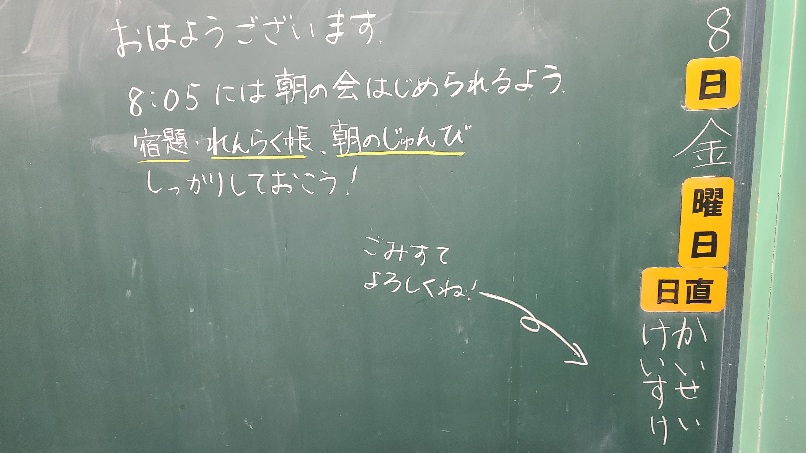 おはようございます。
8:05には朝の会はじめられるよう、
宿題・れんらく帳、朝のじゅんび
しっかりしておこう!
ごみすて
よろしくね!
8
日
金
曜
日
日直
かいせい
けいすけ